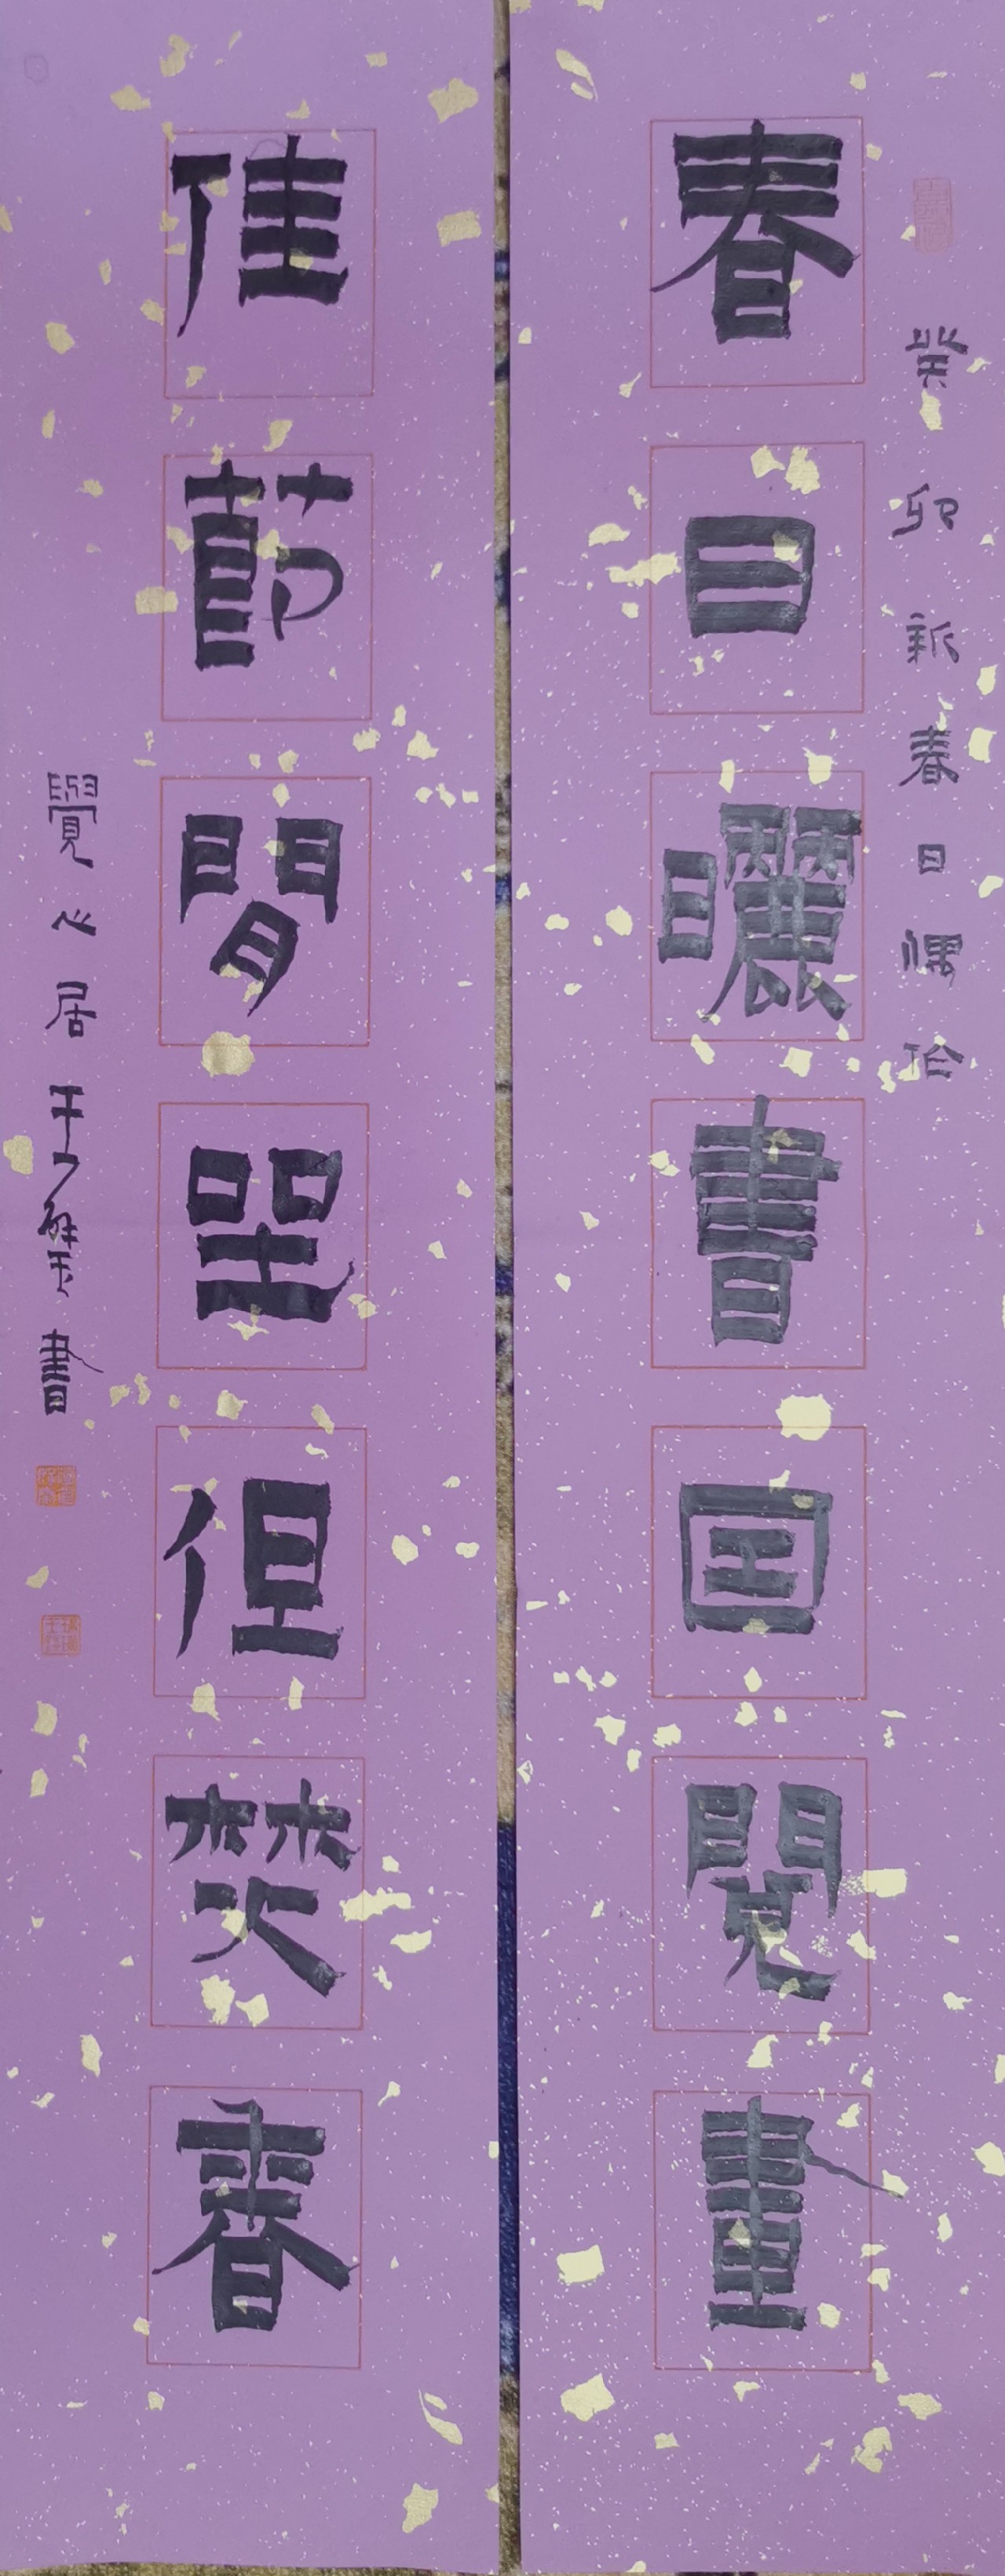 癸卯新春日偶拾
春日曬書閱畫
佳節閒坐但焚香
覺心居 璧書